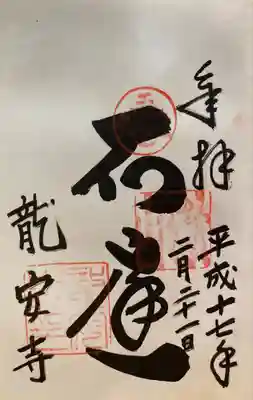 奉拝
平成十七年
二月二十一日
石庭
龍安寺